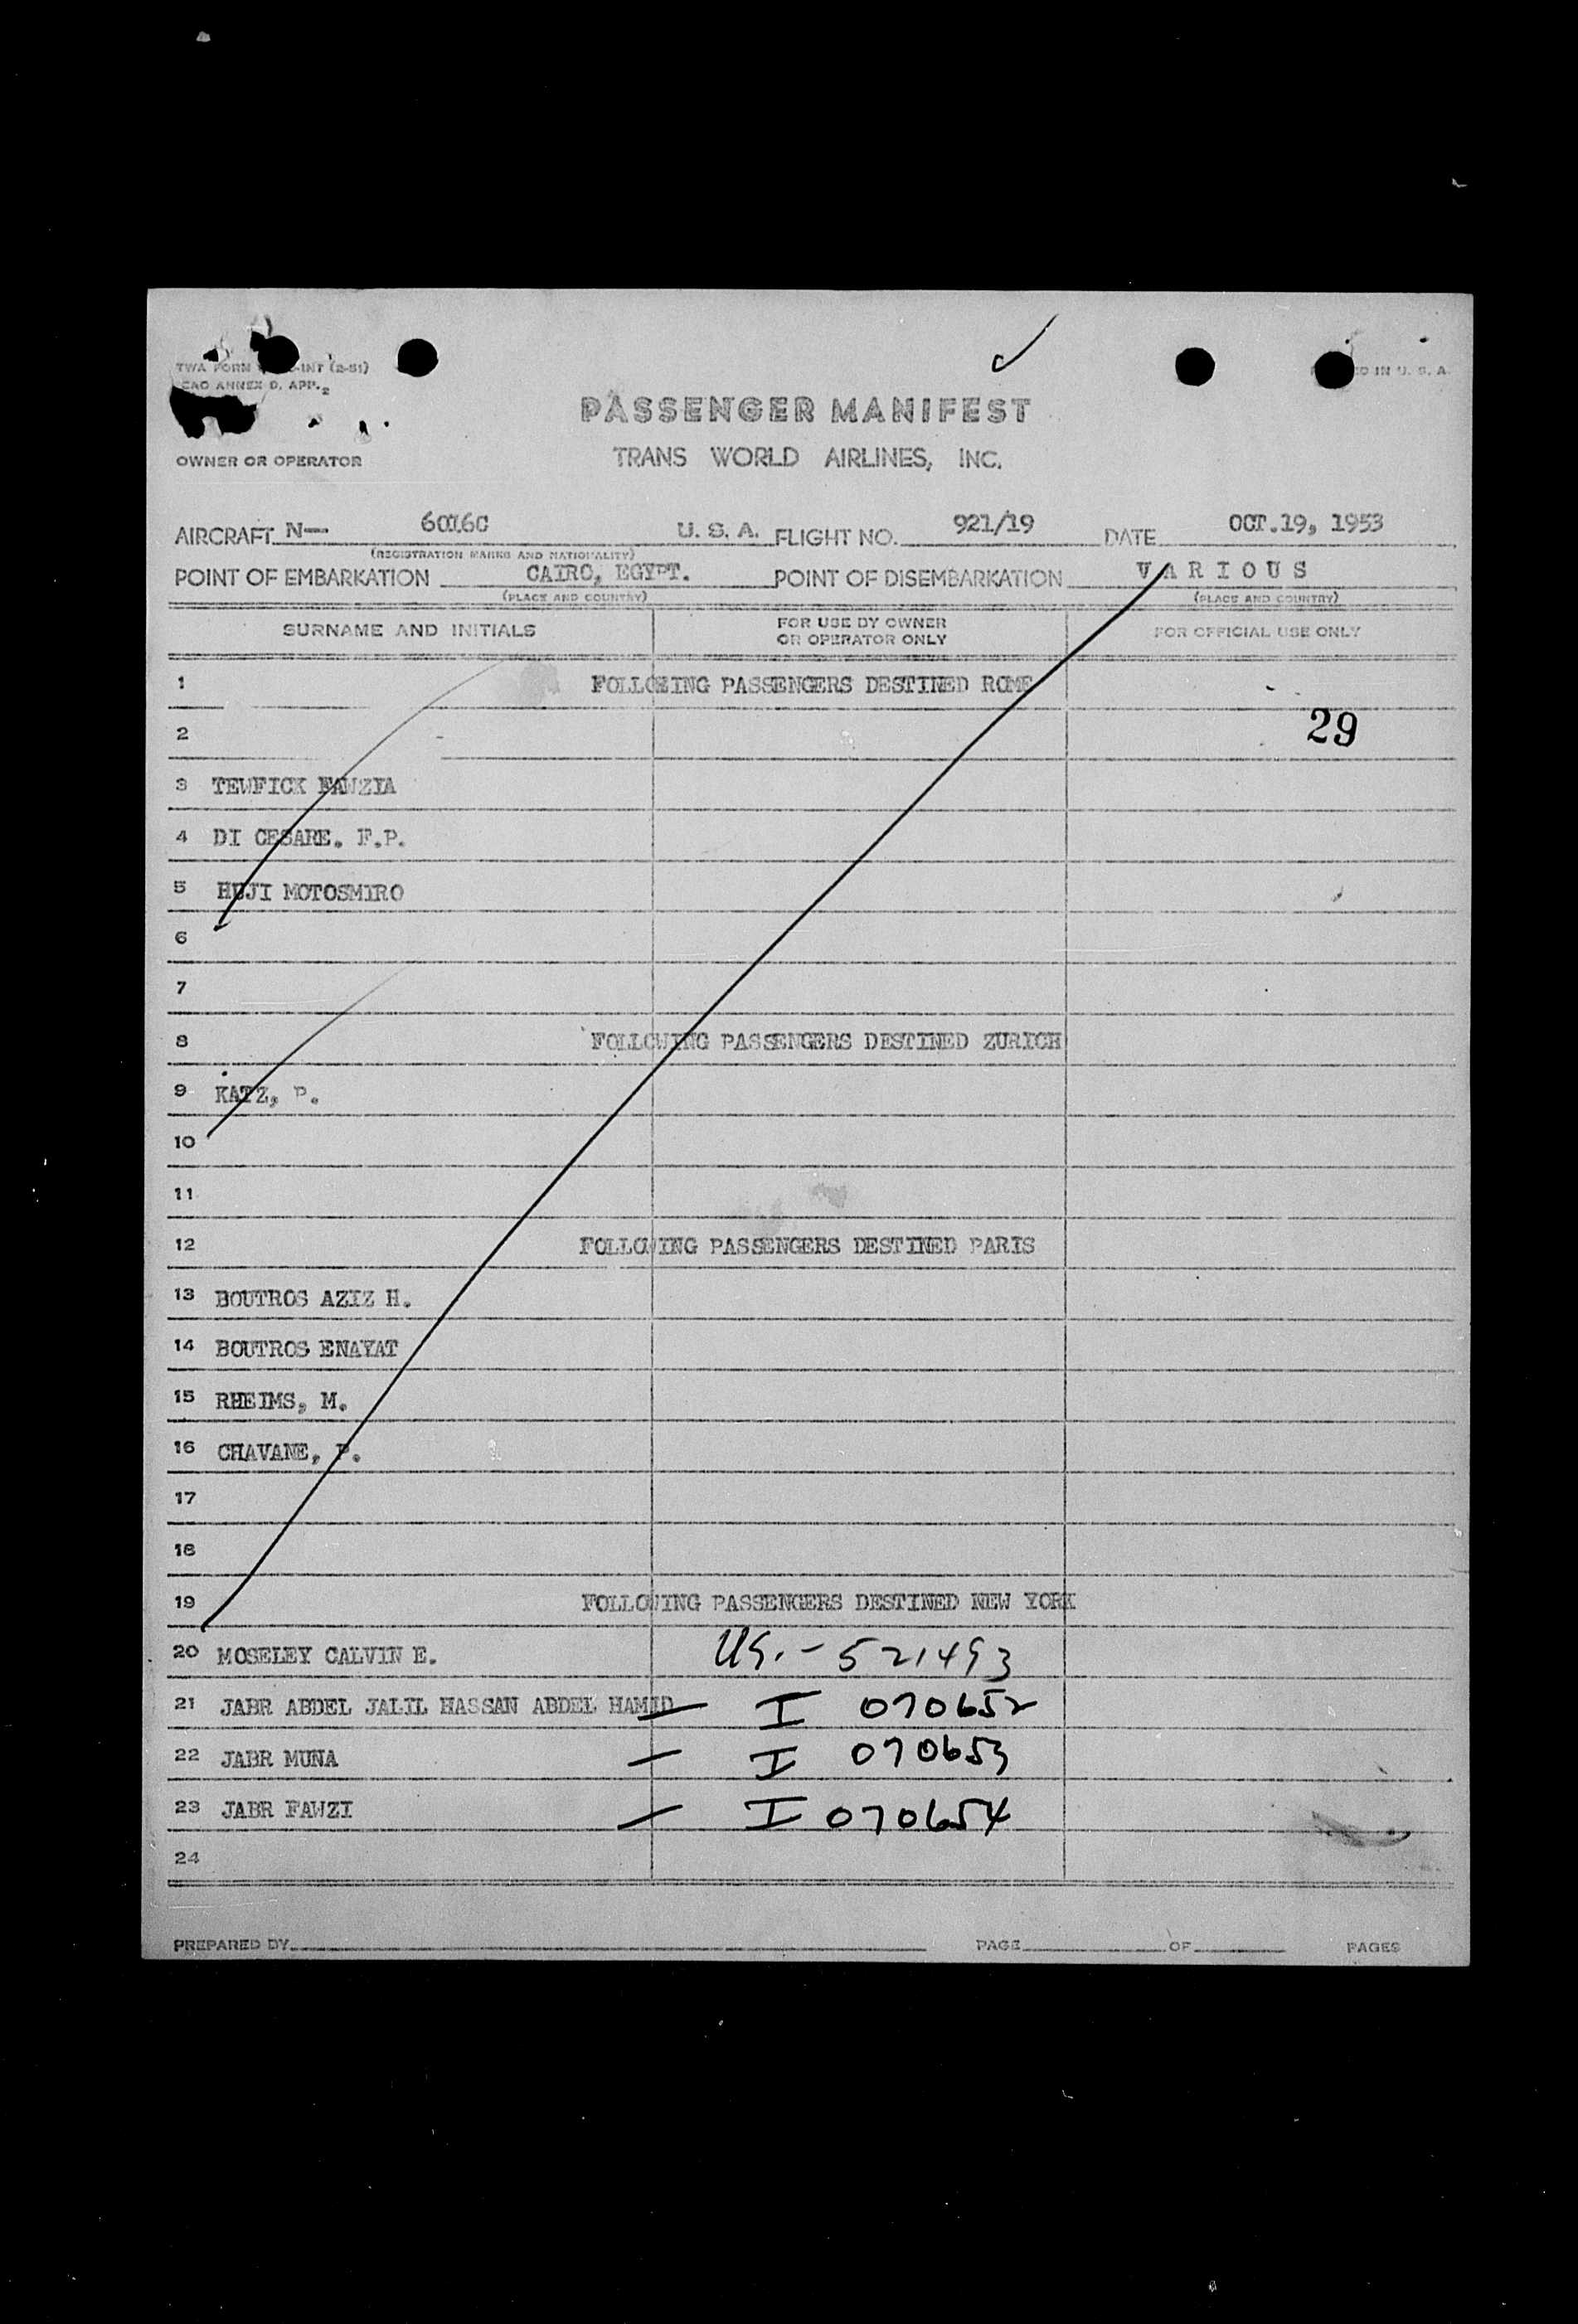 TWA FORM -INT (2-51)
ICAO ANNEX D, APP. 2
D IN U. S. A.
PASSENGER MANIFEST
OWNER OR OPERATOR
TRANS WORLD AIRLINES, INC.
AIRCRAFT N— 6016C U. S. A. FLIGHT NO. 921/19 DATE OCT.19, 1953
(REGISTRATION MARKS AND NATIONALITY)
POINT OF EMBARKATION CAIRO, EGYPT. POINT OF DISEMBARKATION V A R I O U S
(PLACE AND COUNTRY) (PLACE AND COUNTRY)
SURNAME AND INITIALS FOR USE BY OWNER OR OPERATOR ONLY FOR OFFICIAL USE ONLY
1 FOLLOWING PASSENGERS DESTINED ROME
2 29
3 TEWFICK FAWZIA
4 DI CESARE. F.P.
5 HUJI MOTOSMIRO
6
7
8 FOLLOWING PASSENGERS DESTINED ZURICH
9 KATZ, P.
10
11
12 FOLLOWING PASSENGERS DESTINED PARIS
13 BOUTROS AZIZ H.
14 BOUTROS ENAYAT
15 RHEIMS, M.
16 CHAVANE, P.
17
18
19 FOLLOWING PASSENGERS DESTINED NEW YORK
20 MOSELEY CALVIN E. US. - 521493
21 JABR ABDEL JALIL HASSAN ABDEL HAMID — I 070652
22 JABR MUNA — I 070653
23 JABR FAWZI — I 070654
24
PREPARED BY PAGE OF PAGES